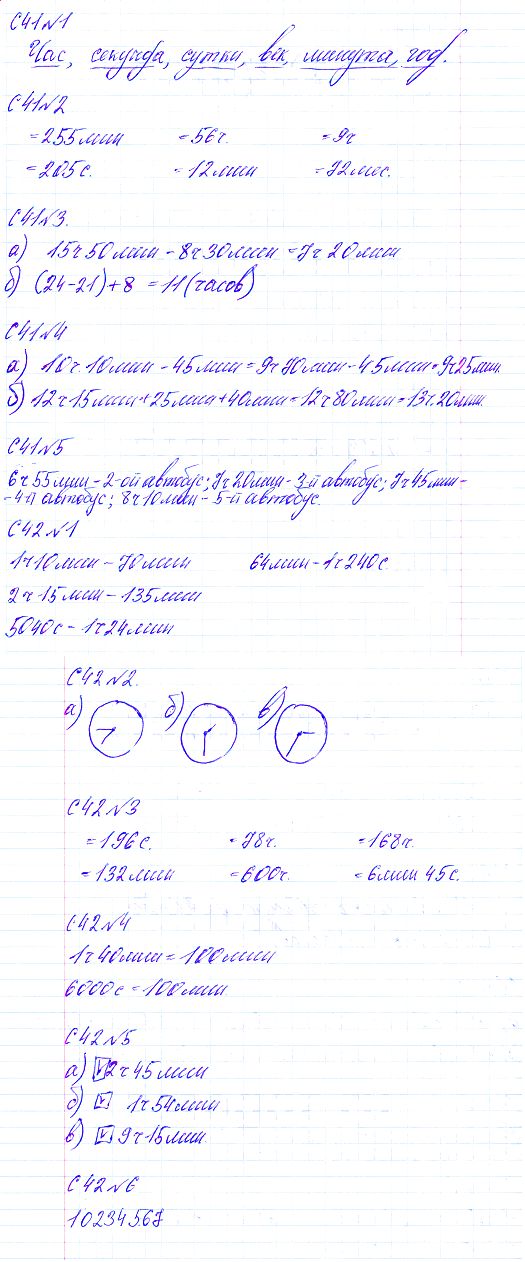 С41№1
Час, секунда, сутки, век, минута, год.
С41№2
=255мин =56ч. =9ч
=205с. =12мин =72мес.
С41№3.
а) 15ч50мин-8ч30мин=7ч20мин
б) (24-21)+8=11(часов)
С41№4
а) 10ч.10мин-45мин=9ч70мин-45мин=9ч25мин.
б) 12ч15мин+25мин+40мин=12ч80мин=13ч.20мин.
С41№5
6ч55мин-2-ой автобус; 7ч20мин-3-й автобус; 7ч45мин-
-4-й автобус; 8ч10мин-5-й автобус.
С42№1
1ч10мин-70мин 64мин-1ч240с
2ч15мин-135мин
5040с-1ч24мин
С42№2.
а) б) в)
С42№3
=196с. =78ч. =168ч.
=132мин =600ч. =6мин 45с.
С42№4
1ч40мин=100мин
6000с=100мин
С42№5
а) 2ч45мин
б) 1ч54мин
в) 9ч15мин
С42№6
10234567